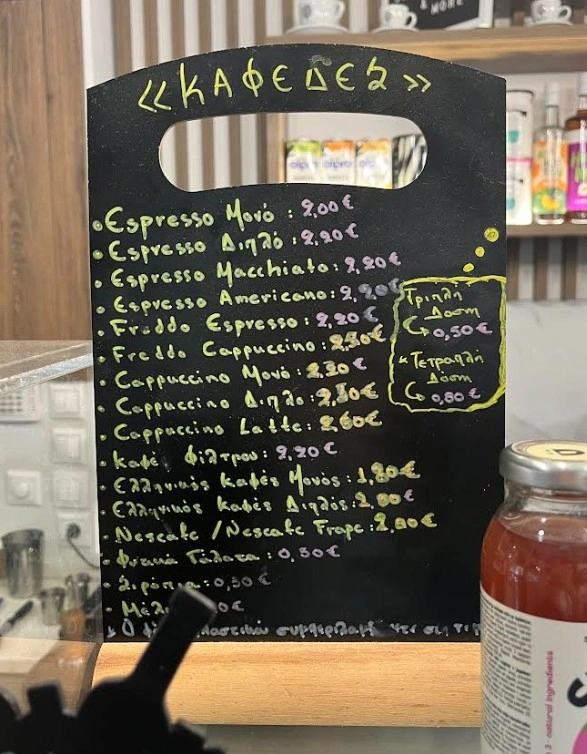 & MORE
«ΚΑΦΕΔΕΣ»
• Espresso Μονό : 2,00€
• Espresso Διπλό : 2,20€
• Espresso Macchiato : 2,20€
• Espresso Americano : 2,20€
• Freddo Espresso : 2,20€
• Freddo Cappuccino :
• Cappuccino Μονό :
• Cappuccino Διπλό :
• Cappuccino Latte : 2,60€
• Καφέ Φίλτρου : 2,20€
• Ελληνικός Καφές Μονός : 1,80€
• Ελληνικός Καφές Διπλός : 2,00€
• Nescafe / Nescafe Frape : 2,00€
• Φυτικά Γάλατα : 0,50€
• Σιρόπια : 0,50€
• Μέλι 0€
Τριπλή
Δόση
↳ 0,50€
Τετραπλή
Δόση
↳ 0,80€
natural ingredients